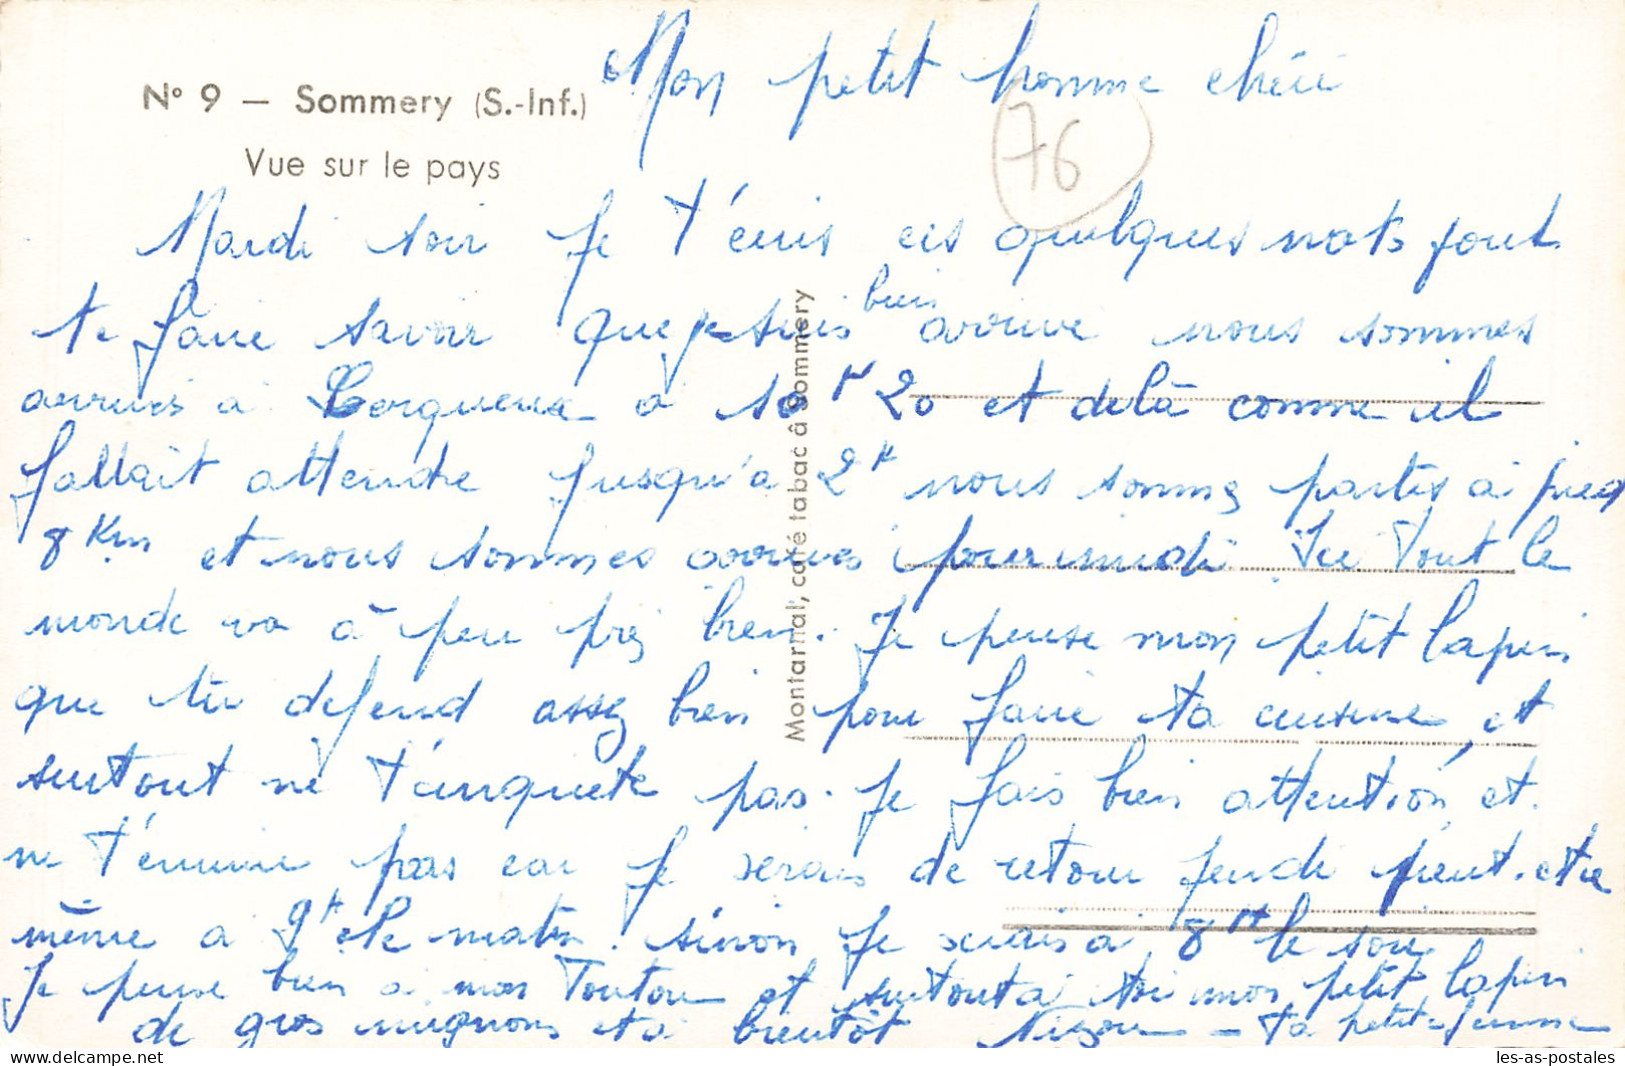 N° 9 — Sommery (S.-Inf.)
Vue sur le pays
Mon petit homme chéri
76
Mardi soir je t'écris ces quelques mots pour
te faire savoir que je suis bien arrivé nous sommes
arrivés à Serqueux a 10 H 20 et delà comme il
fallait attendre jusqu'a 2 H nous sommes partis à pied
8 Km et nous sommes arrivés pour midi. Ici tout le
monde va à peu près bien. Je pense mon petit lapin
que tu defend assez bien pour faire ta cuisine, et
surtout ne t'inquete pas. Je fais bien attention et
ne t'ennuie pas car je serais de retour jeudi peut-etre
même a 9 H de matin. sinon je serais a 8 H le soir
Je pense bien a mon Toutou et surtout a toi mon petit lapin
de gros mignons et a bientôt – ta petite femme
Montarnal, café tabac à Sommery
les-as-postales